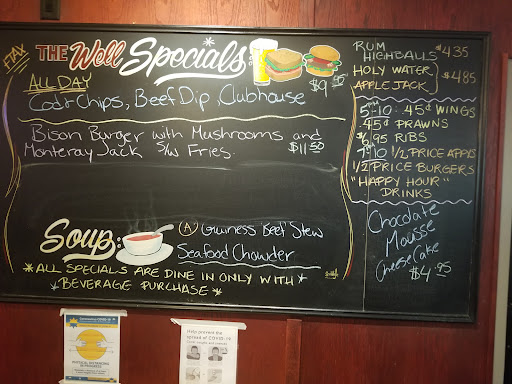 +TAX
THE Well Specials
$9.95
ALL DAY
Cod & Chips, Beef Dip, Clubhouse
Bison Burger with Mushrooms and
Monteray Jack S/W Fries. $11.50
Soup
(A) Guiness Beef Stew
Seafood Chowder
*ALL SPECIALS ARE DINE IN ONLY WITH*
*BEVERAGE PURCHASE*
RUM
HIGHBALLS $4.35
HOLY WATER
APPLEJACK $4.85
5-10: 45¢ WINGS
45¢ PRAWNS
$6.95 RIBS
7-10 1/2 PRICE APPYS
1/2 PRICE BURGERS
"HAPPY HOUR"
DRINKS
Chocolate
Mousse
CheeseCake
$4.95
Help prevent the
spread of COVID-19